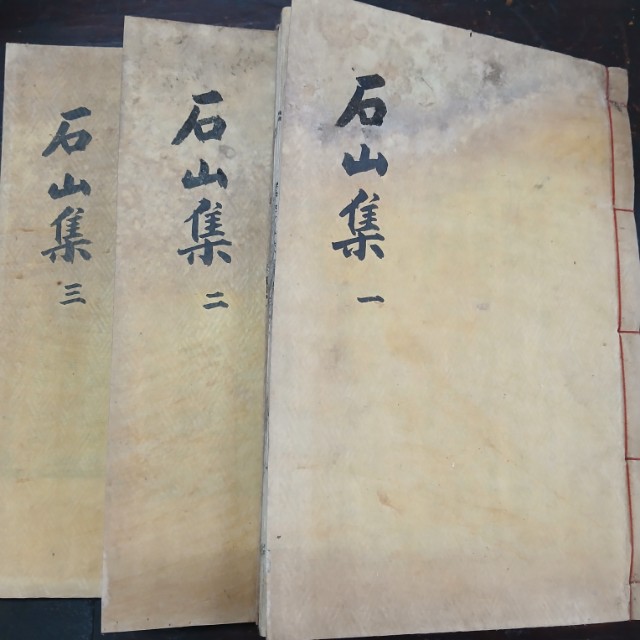 石山集 一
石山集 二
石山集 三